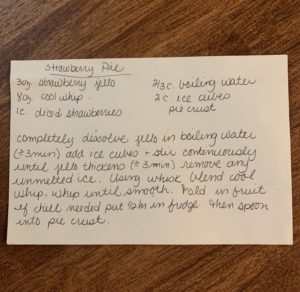 Strawberry Pie
3oz strawberry jello 2/3 c. boiling water
8oz cool whip. 2 c. ice cubes
1c. diced strawberries pie crust
completely dissolve jello in boiling water
(±3min) add ice cubes + stir continuously
until jello thickens (± 3min) remove any
unmelted ice. Using whisk blend cool
whip. whip until smooth. Fold in fruit
if chill needed put 1/2hr in fridge then spoon
into pie crust.